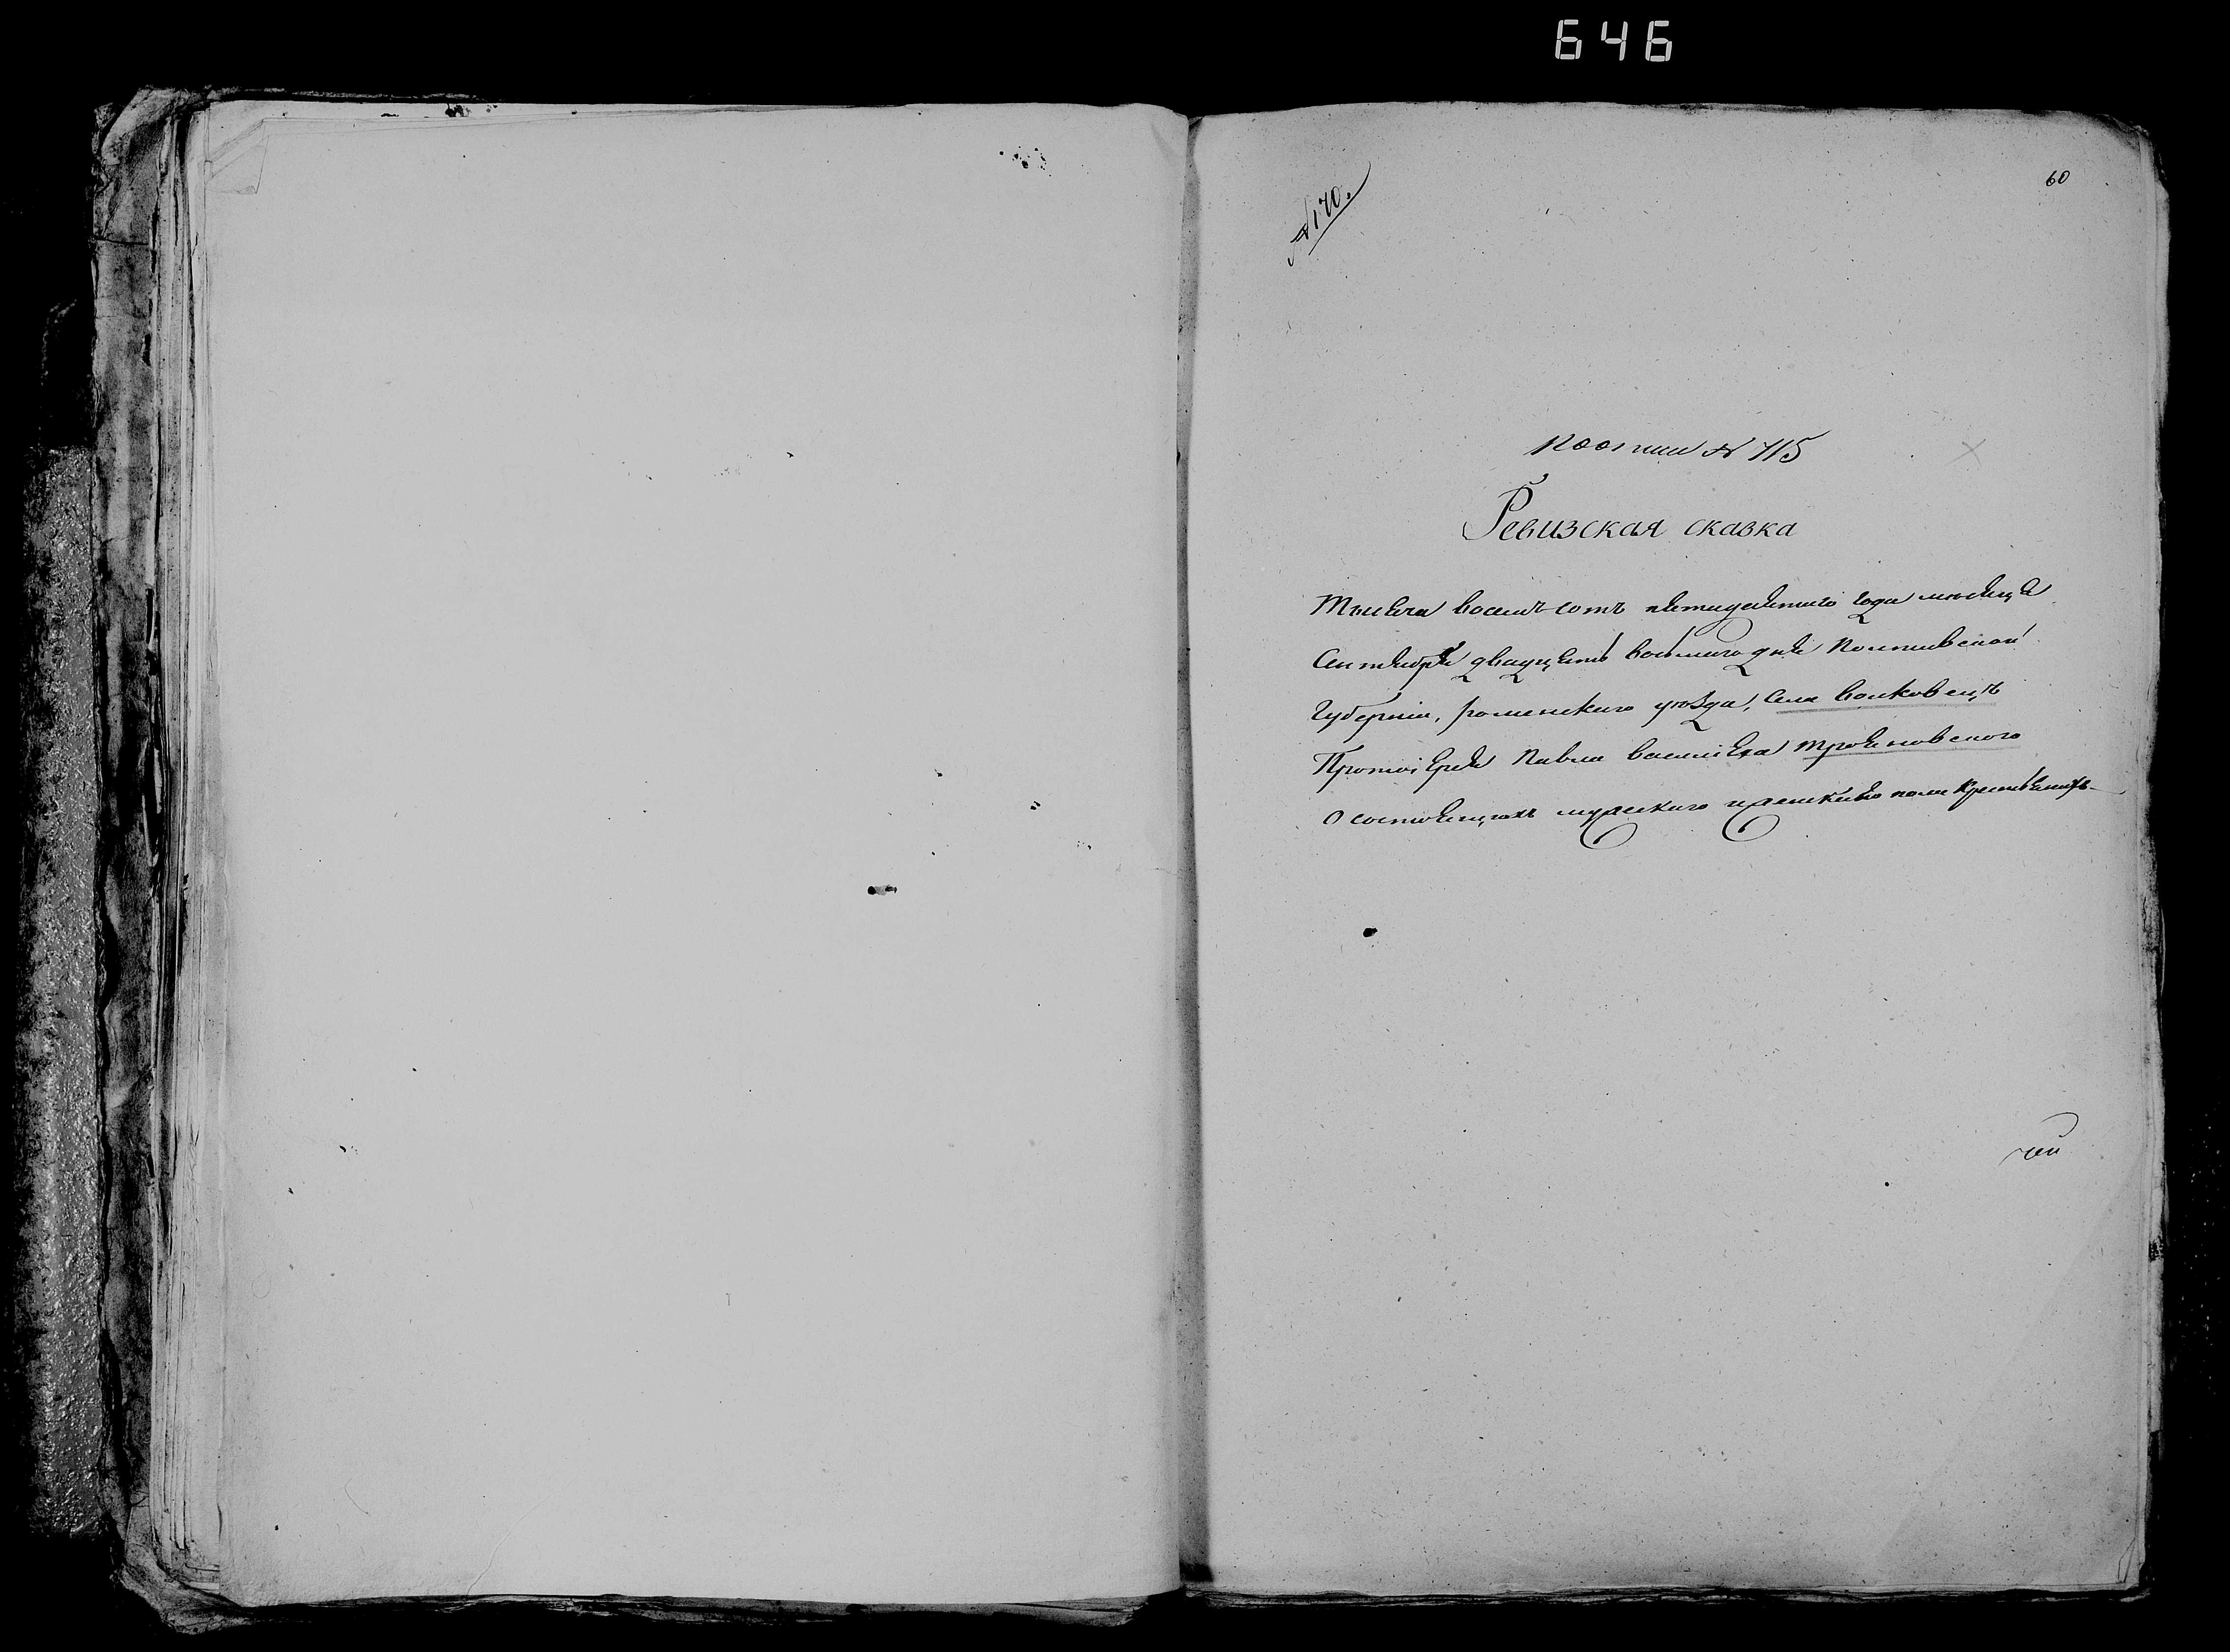 646
60
№ 170.
Копии № 715
Ревизская сказка
Тысяча восемъ сотъ пятидесятаго года месяца
Сентября двадцать восьмаго дня Полтавской
Губернии, роменскаго уѣзда, Села волковецъ
Протоіерея Павла василіева трояновского
О состоящихъ мужескаго и женскаго пола крестьянахъ